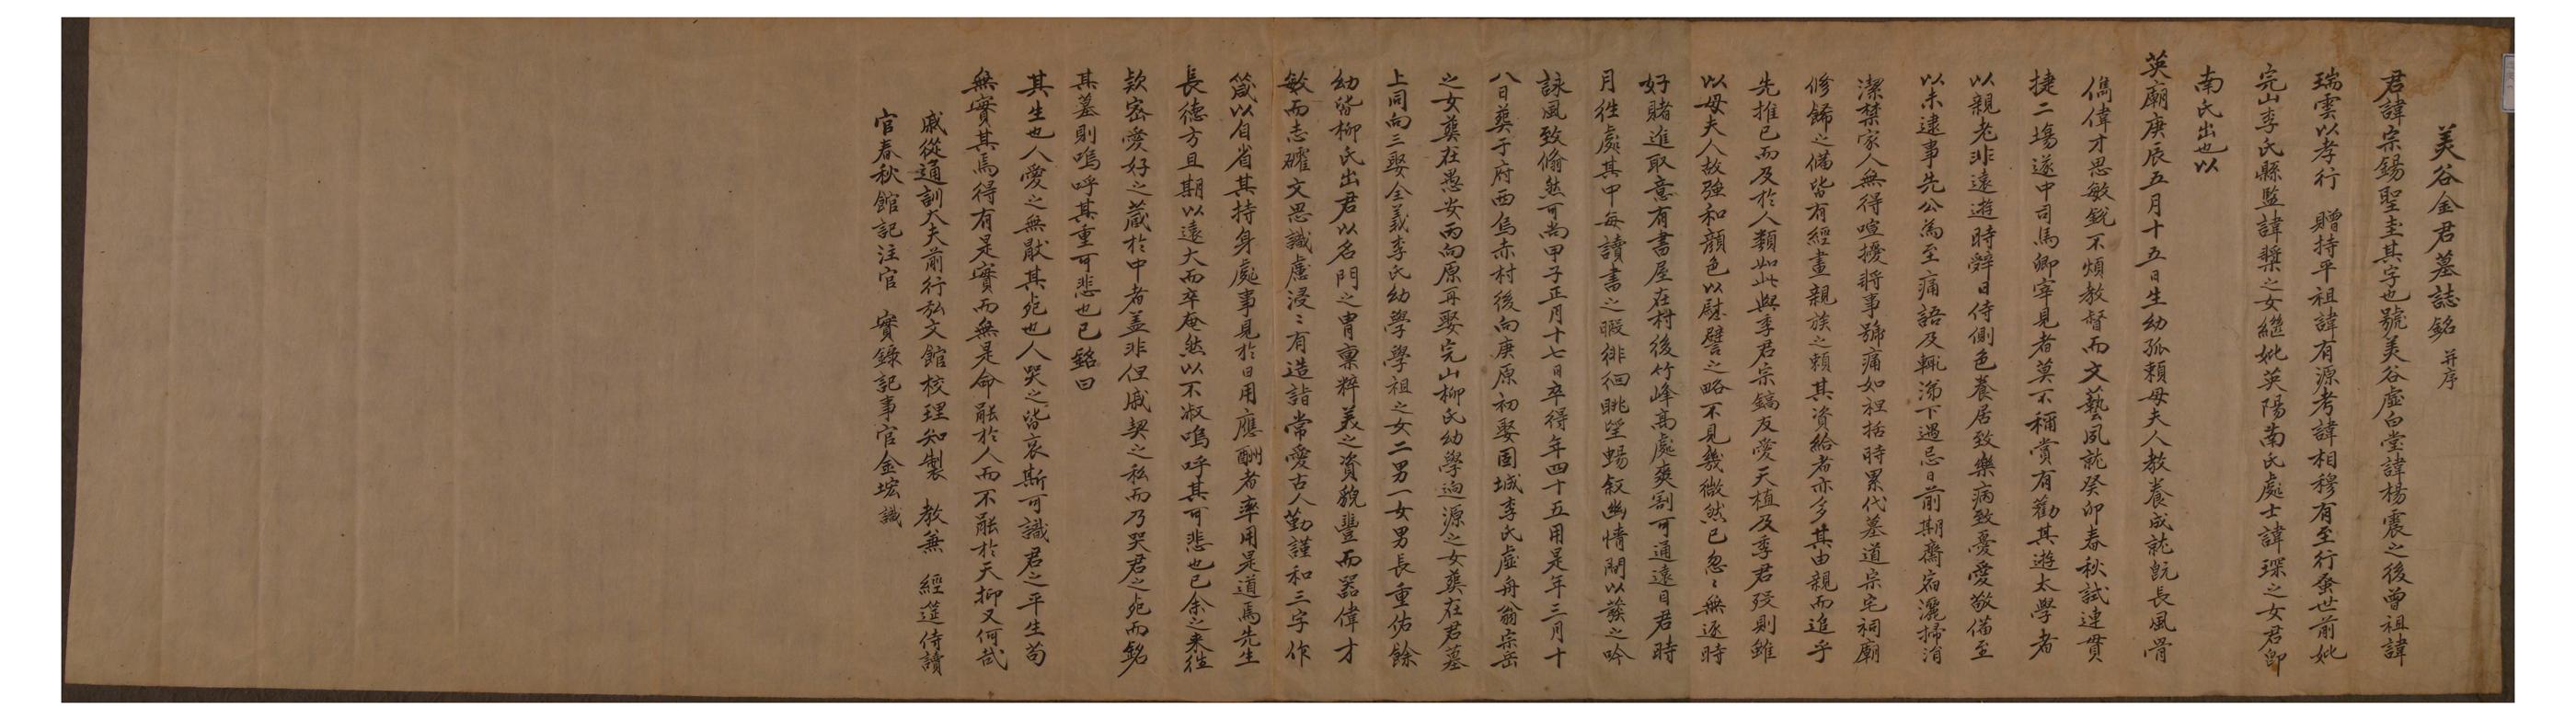 美谷金君墓誌銘 并序
君諱宗錫聖圭其字也號美谷虛白堂諱楊震之後曾祖諱
瑞雲以孝行 贈持平祖諱有源考諱相穆有至行蚤世前妣
完山李氏縣監諱槼之女繼妣英陽南氏處士諱琛之女君卽
南氏出也以
英廟庚辰五月十五日生幼孤賴母夫人教養成就旣長風骨
儁偉才思敏銳不煩教督而文藝夙就癸卯春秋試連貫
捷二場遂中司馬鄕宰見者莫不稱賞有勸其遊太學者
以親老非遠遊時辭日侍側色養居致樂病致憂愛敬備至
以未逮事先公爲至痛語及輒涕下遇忌日前期齋宿灑掃消
潔禁家人無得喧擾將事號痛如袒括時累代墓道宗宅祠廟
修歸之備皆有經畫親族之賴其資給者亦多其由親而追乎
先推已而及於人類如此與季君宗鎬友愛天植及季君歿則雖
以母夫人故強和顔色以慰譬之略不見幾微然已忽〻無逐時
好賭進取意有書屋在村後竹峰高處爽豁可通遠目君時
月徃處其中每讀書之暇徘徊眺望觴叙幽情間以發之吟
詠風致翛然可尚甲子正月十七日卒得年四十五用是年三月十
八日葬于府西烏赤村後向庚原初娶固城李氏虛舟翁宗岳
之女葬在愚安丙向原再娶完山柳氏幼學迨源之女葬在君墓
上同向三娶全義李氏幼學學祖之女二男一女男長重佑餘
幼皆柳氏出君以名門之胄稟粹美之資貌豐而器偉才
敏而志礭文思識慮浸〻有造詣常愛古人勤謹和三字作
箴以自省其持身處事見於日用應酬者率用是道焉先生
長德方且期以遠大而卒奄然以不淑嗚呼其可悲也已余之來徃
款密愛好之蔵於中者盖非但戚契之私而乃哭君之死而銘
其墓則嗚呼其重可悲也已銘曰
其生也人愛之無猒其死也人哭之皆哀斯可識君之平生苟
無實其焉得有是實而無是命能於人而不能於天抑又何哉
戚從通訓大夫前行弘文館校理知製 教兼 經筵侍讀
官春秋館記注官 實錄記事官金㙆識